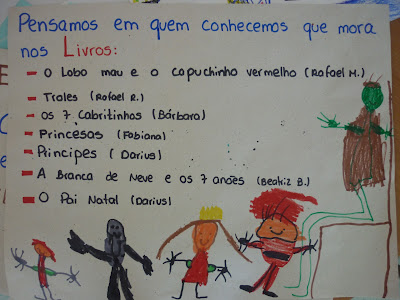 Pensamos em quem conhecemos que mora
nos Livros:
- O Lobo mau e o capuchinho vermelho (Rafael M.)
- Troles (Rafael R.)
- os 7 Cabritinhos (Bárbara)
- Princesas (Fabiana)
- Principes (Darius)
- A Branca de Neve e os 7 anões (Beatriz B.)
- O Pai Natal (Darius)